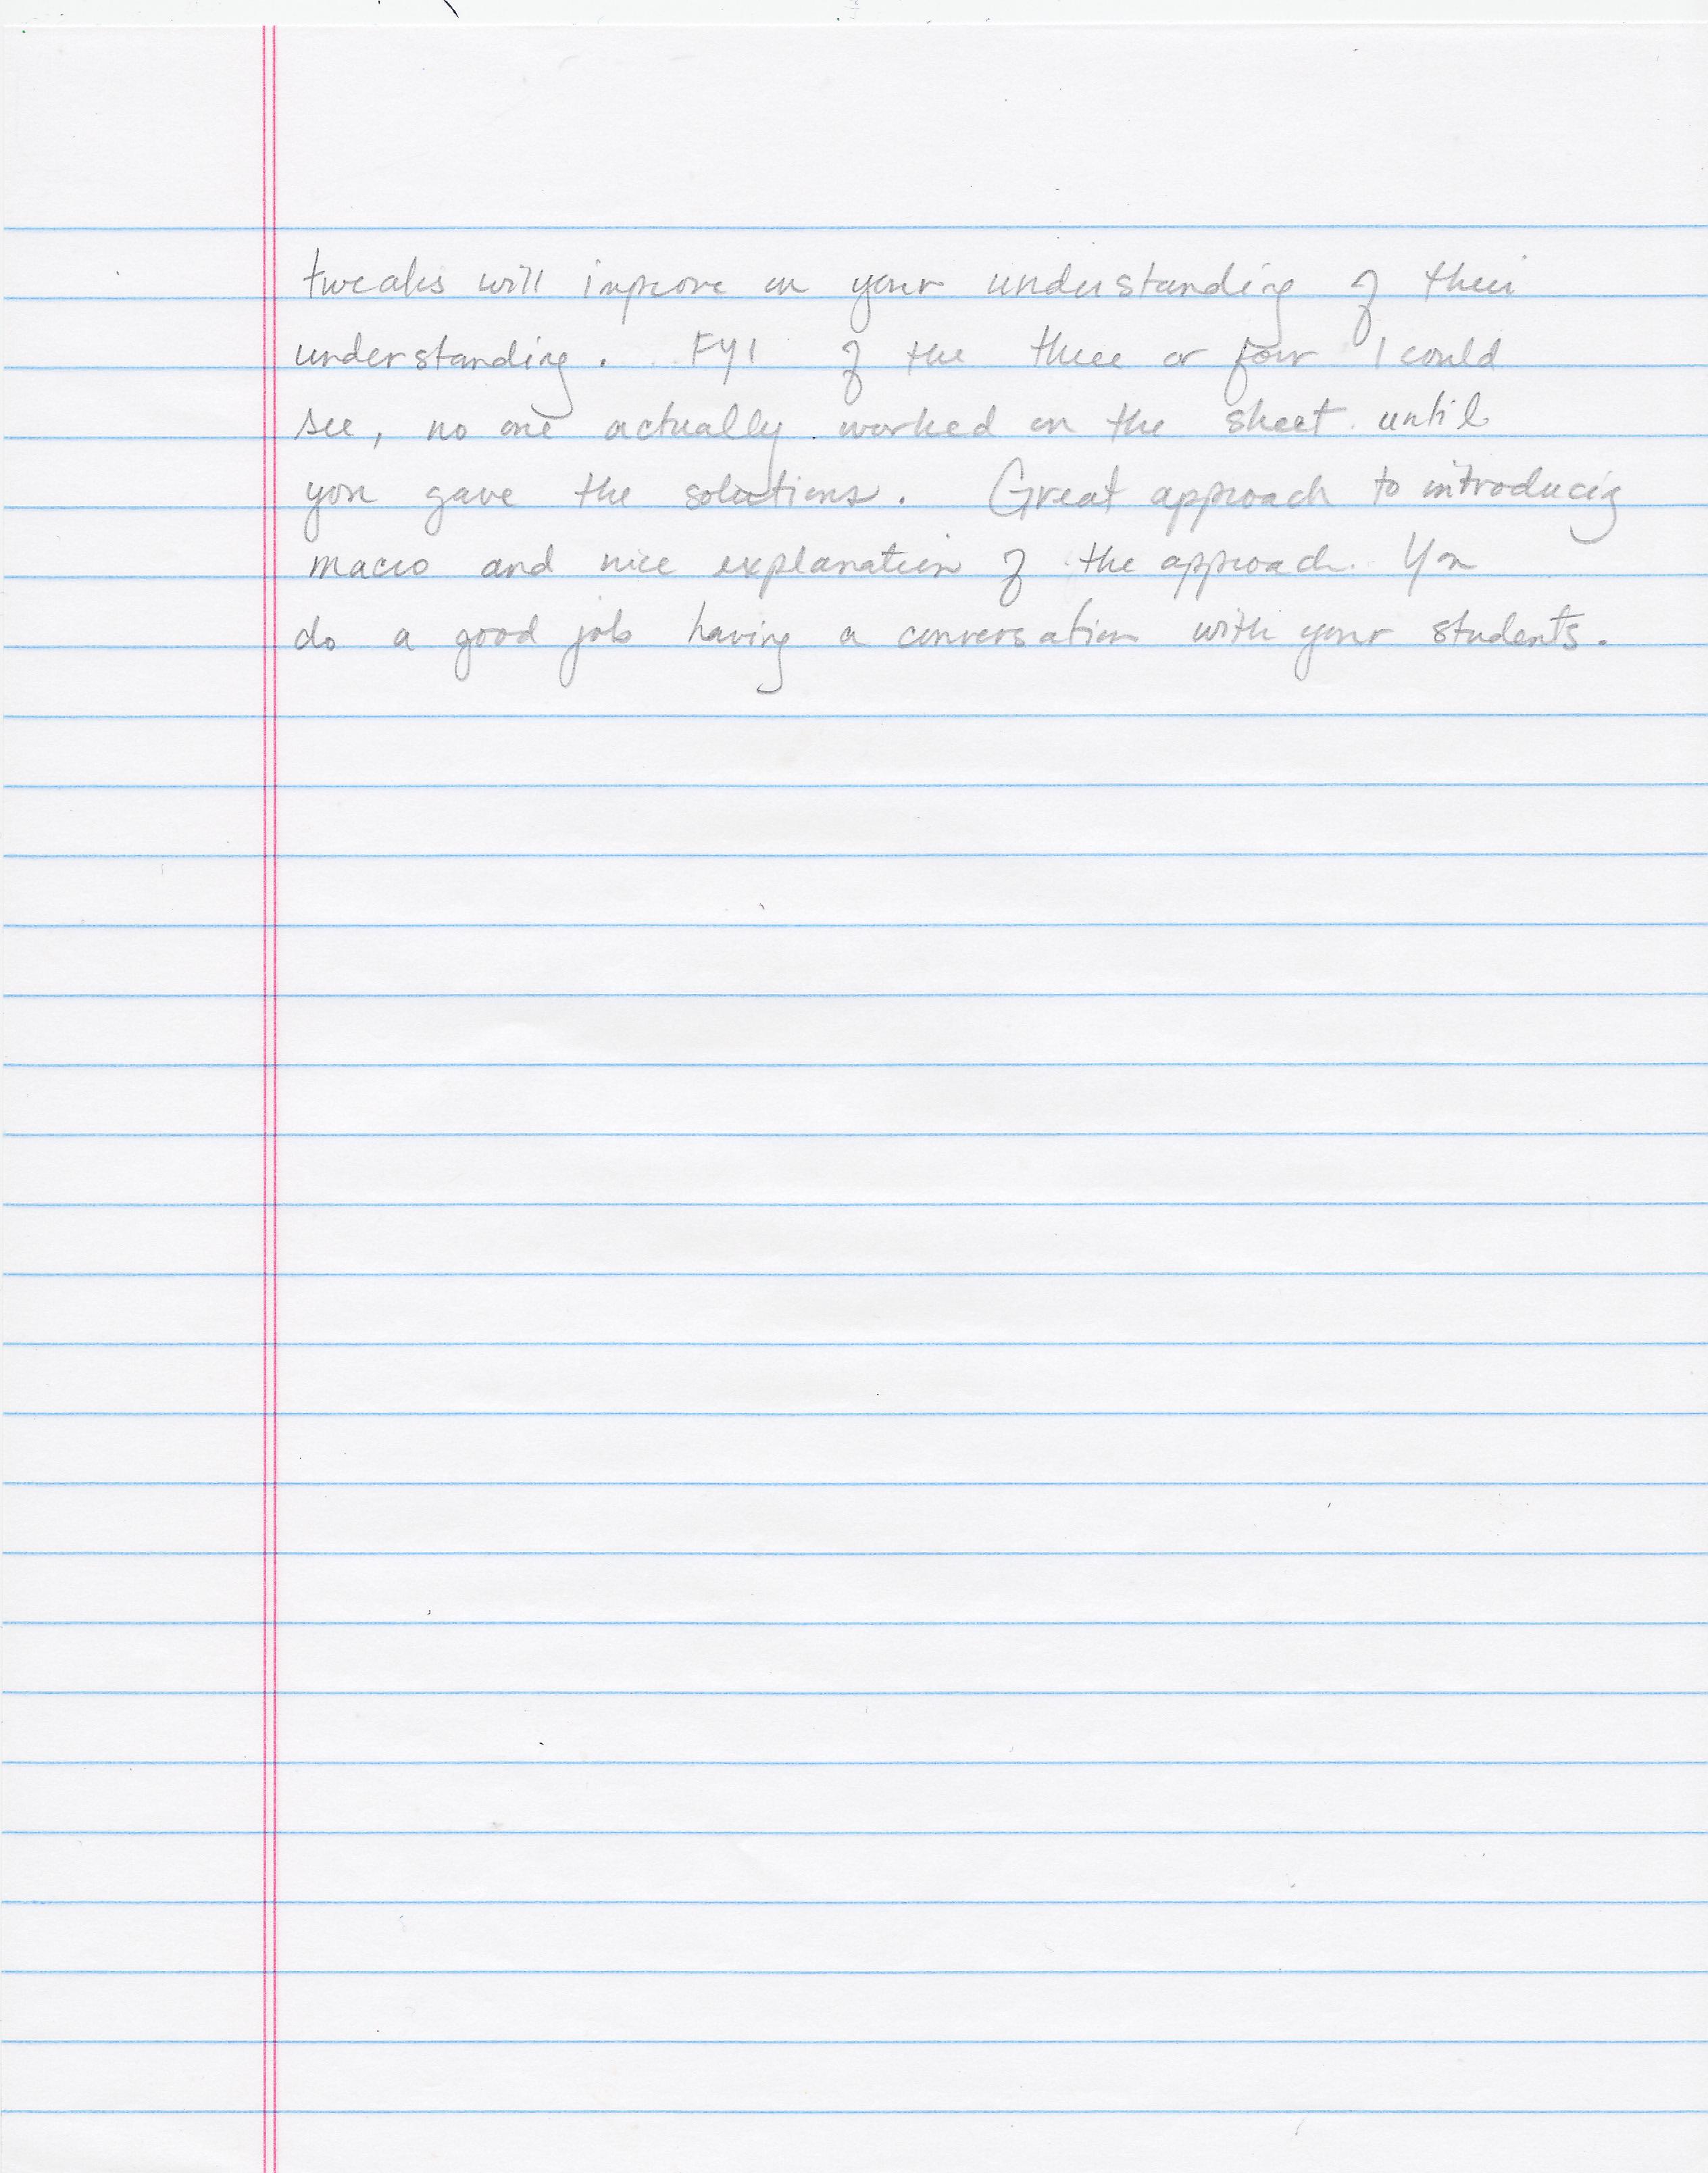 tweaks will improve on your understanding of their
understanding. FYI of the three or four I could
see, no one actually worked on the sheet until
you gave the solutions. Great approach to introducing
macro and nice explanation of the approach. You
do a good job having a conversation with your students.